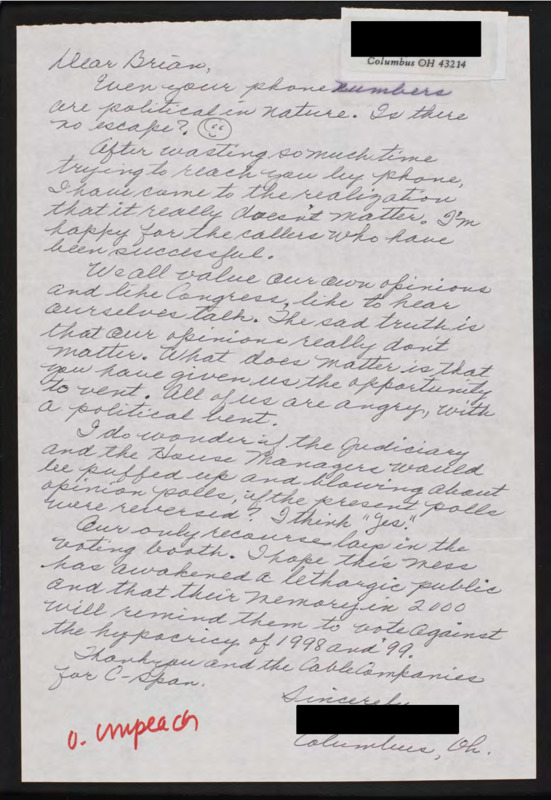 Columbus OH 43214
Dear Brian,
Even your phone numbers
are political in nature. Is there
no escape?
After wasting so much time
trying to reach you by phone,
I have come to the realization
that it really doesn't matter. I'm
happy for the callers who have
been successful.
We all value our own opinions
and like Congress, like to hear
ourselves talk. The sad truth is
that our opinions really don't
matter. What does matter is that
you have given us the opportunity
to vent. All of us are angry, with
a political bent.
I do wonder if the Judiciary
and the House Managers would
be puffed up and blowing about
opinion polls, if the present polls
were reversed? I think "Yes."
Our only recourse lays in the
voting booth. I hope this mess
has awakened a lethargic public
and that their memory in 2000
will remind them to vote against
the hypocricy of 1998 and '99.
Thank you and the Cable Companies
for C-Span.
Sincerely
Columbus, Oh.
O. impeach